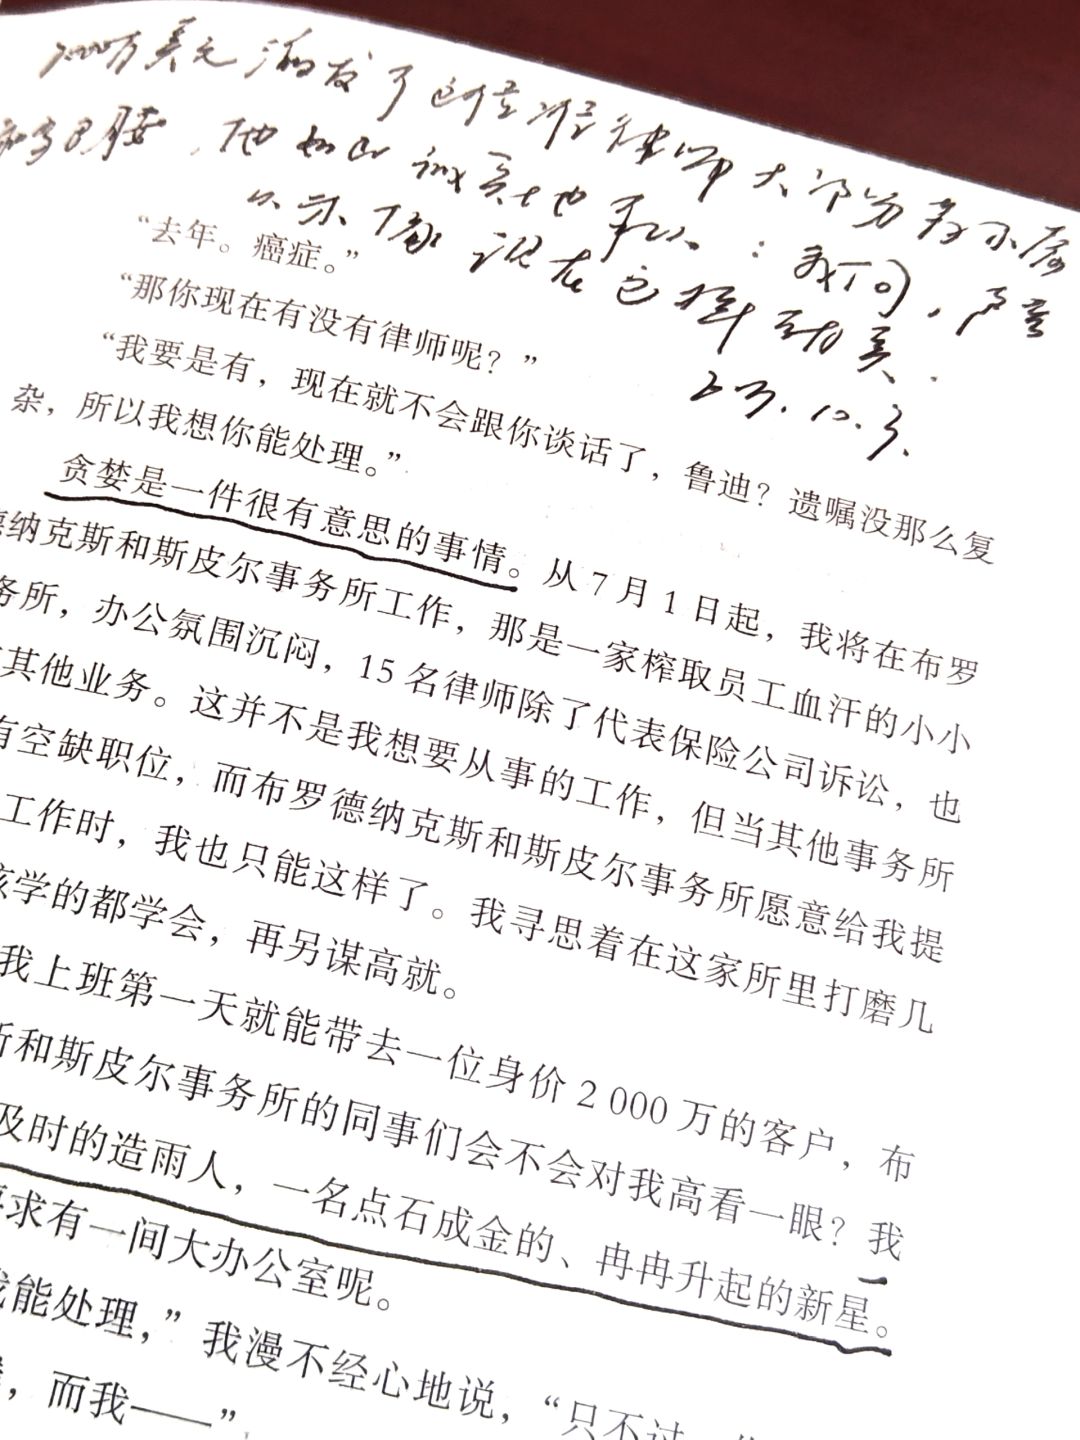 2000万美元激发了这位准律师大部分考不属
，他如此诚实地承认：我问，声音
从未像现在这样动美．
23.10.3.
“去年。癌症。”
“那你现在有没有律师呢？”
“我要是有，现在就不会跟你谈话了，鲁迪？遗嘱没那么复
杂，所以我想你能处理。”
贪婪是一件很有意思的事情。从7月1日起，我将在布罗
德纳克斯和斯皮尔事务所工作，那是一家榨取员工血汗的小小
务所，办公氛围沉闷，15名律师除了代表保险公司诉讼，也
其他业务。这并不是我想要从事的工作，但当其他事务所
有空缺职位，而布罗德纳克斯和斯皮尔事务所愿意给我提
工作时，我也只能这样了。我寻思着在这家所里打磨几
该学的都学会，再另谋高就。
我上班第一天就能带去一位身价2 000万的客户，布
斯和斯皮尔事务所的同事们会不会对我高看一眼？我
及时的造雨人，一名点石成金的、冉冉升起的新星。
要求有一间大办公室呢。
我能处理，”我漫不经心地说，“只不过
，而我——”